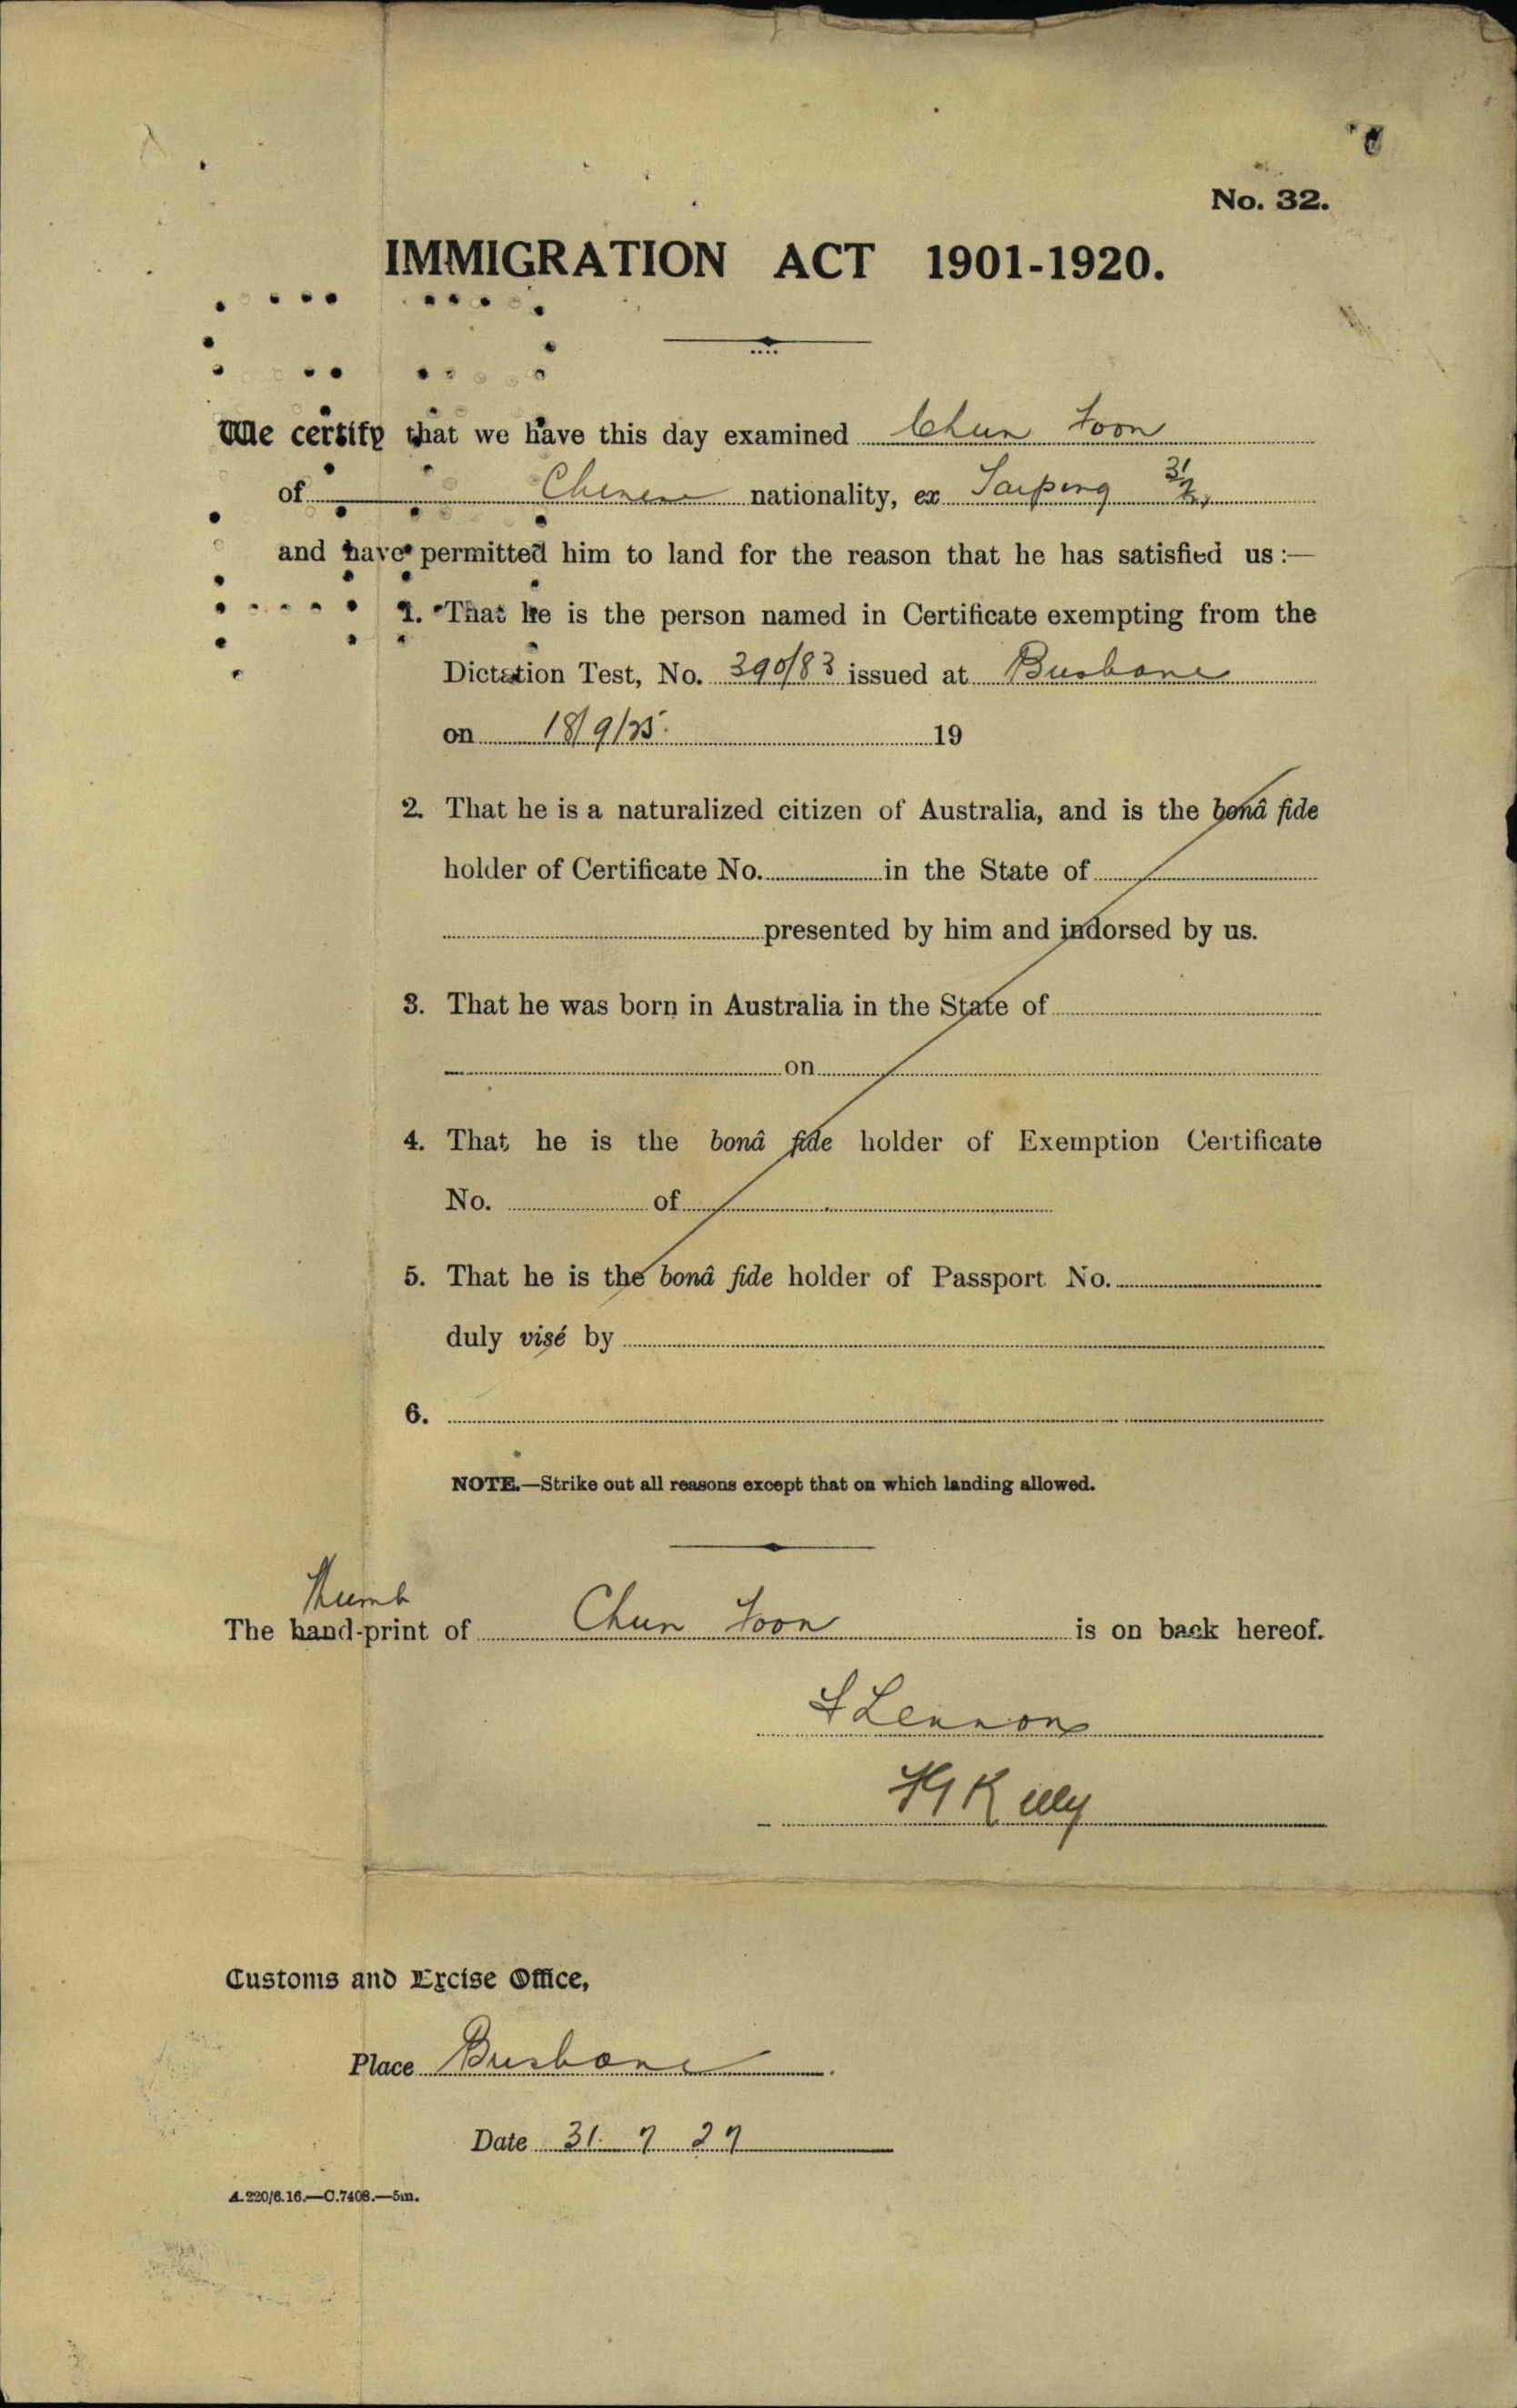 No. 32.
IMMIGRATION ACT 1901-1920.
We certify that we have this day examined Chun Foon
of Chinese nationality, ex Taiping 31/7
and have permitted him to land for the reason that he has satisfied us:—
1. That he is the person named in Certificate exempting from the
Dictation Test, No. 390/83 issued at Brisbane
on 18/9/25. 19
2. That he is a naturalized citizen of Australia, and is the bonâ fide
holder of Certificate No. in the State of
presented by him and indorsed by us.
3. That he was born in Australia in the State of
on
4. That he is the bonâ fide holder of Exemption Certificate
No. of
5. That he is the bonâ fide holder of Passport No.
duly visé by
6.
NOTE.—Strike out all reasons except that on which landing allowed.
Thumb
The hand-print of Chun Foon is on back hereof.
Lennon
Customs and Excise Office,
Place Brisbane
Date 31. 7 27
A.220/6.16.—C.7408.—5m.